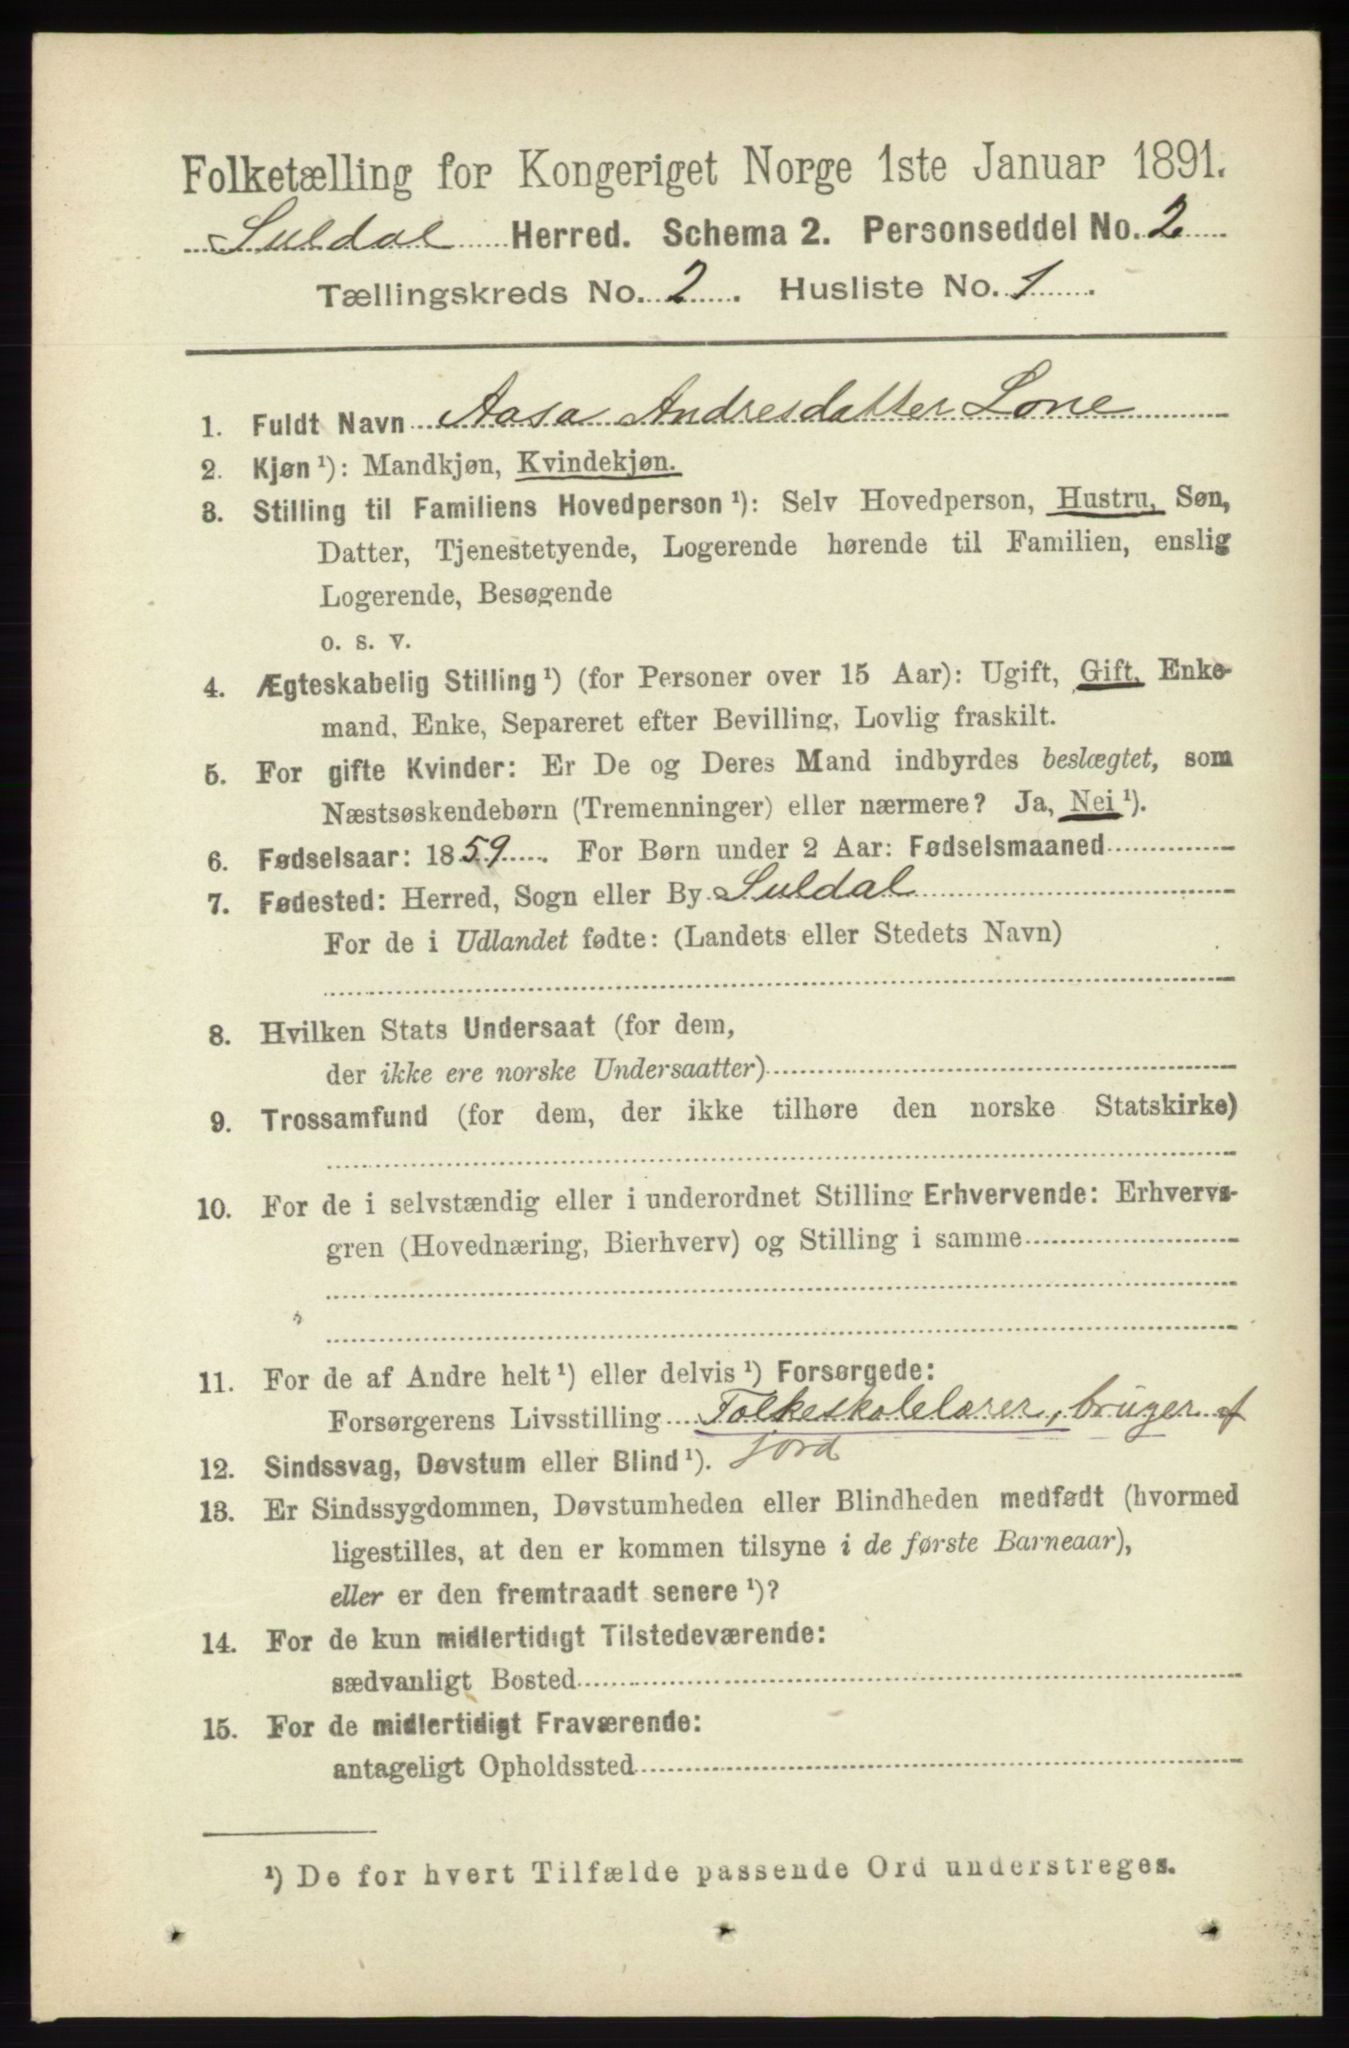 Folketælling for Kongeriget Norge 1ste Januar 1891.
Suldal Herred. Schema 2. Personseddel No. 2
Tællingskreds No. 2. Husliste No. 1.
1. Fuldt Navn Aasa Andresdatter Lone
2. Kjøn ¹): Mandkjøn, Kvindekjøn.
3. Stilling til Familiens Hovedperson ¹): Selv Hovedperson, Hustru, Søn,
Datter, Tjenestetyende, Logerende hørende til Familien, enslig
Logerende, Besøgende
o. s. v.
4. Ægteskabelig Stilling ¹) (for Personer over 15 Aar): Ugift, Gift, Enke-
mand, Enke, Separeret efter Bevilling, Lovlig fraskilt.
5. For gifte Kvinder: Er De og Deres Mand indbyrdes beslægtet, som
Næstsøskendebørn (Tremenninger) eller nærmere? Ja, Nei ¹).
6. Fødselsaar: 1859. For Børn under 2 Aar: Fødselsmaaned
7. Fødested: Herred, Sogn eller By Suldal
For de i Udlandet fødte: (Landets eller Stedets Navn)
8. Hvilken Stats Undersaat (for dem,
der ikke ere norske Undersaatter)
9. Trossamfund (for dem, der ikke tilhøre den norske Statskirke)
10. For de i selvstændig eller i underordnet Stilling Erhvervende: Erhvervs-
gren (Hovednæring, Bierhverv) og Stilling i samme
11. For de af Andre helt ¹) eller delvis ¹) Forsørgede:
Forsørgerens Livsstilling Folkeskolelærer, bruger af
jord
12. Sindssvag, Døvstum eller Blind ¹).
13. Er Sindssygdommen, Døvstumheden eller Blindheden medfødt (hvormed
ligestilles, at den er kommen tilsyne i de første Barneaar),
eller er den fremtraadt senere ¹)?
14. For de kun midlertidigt Tilstedeværende:
sædvanligt Bosted
15. For de midlertidigt Fraværende:
antageligt Opholdssted
¹) De for hvert Tilfælde passende Ord understreges.